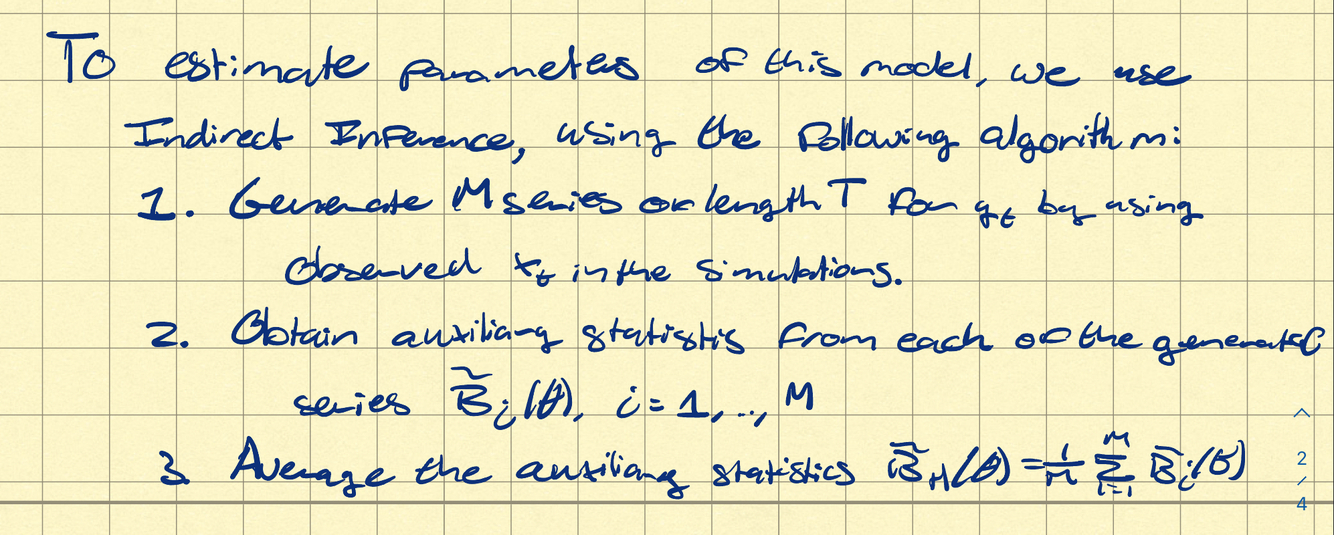 To estimate parameters of this model, we use
Indirect Inference, using the following algorithm:
1. Generate M series of length T for y_t by using
observed x_t in the simulations.
2. Obtain auxiliary statistis from each of the generated
series B̃_i(θ), i = 1, .., M
3. Average the auxiliary statistics B̃_M(θ) = 1/M ∑_{i=1}^{M} B̃_i(θ)
2
/
4